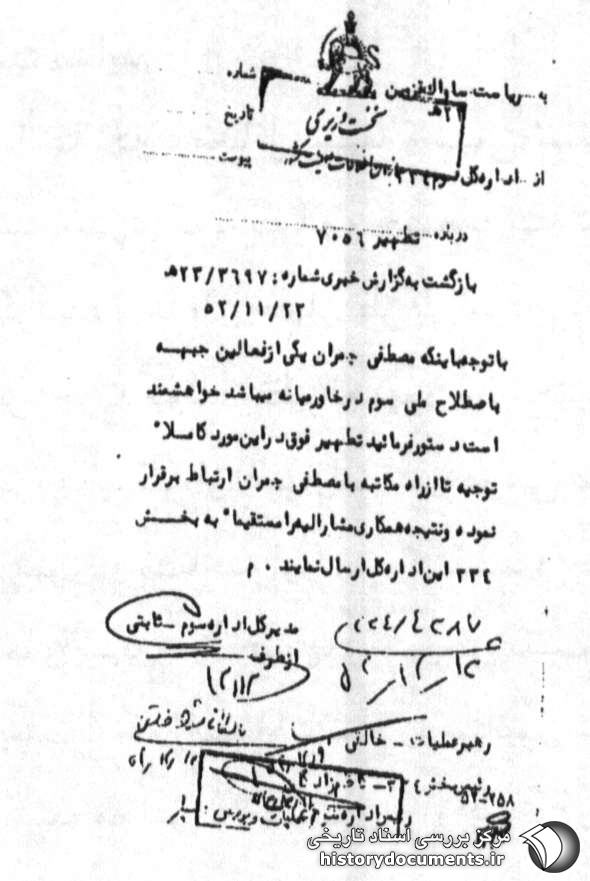 به ریاست ساواک قزوین
۲۱ هـ
شماره
نخست وزیری
تاریخ
سازمان اطلاعات و امنیت کشور
پیوست
از اداره کل سوم ۳۳٤
درباره تطهیر ۷۰۵٦
بازگشت به گزارش خبری شماره: ۲۳/۳٦۹۷هـ
۵۲/۱۱/۲۳
با توجه باینکه مصطفی چمران یکی از فعالین جبهه
باصطلاح ملی سوم در خاورمیانه میباشد خواهشمند
است دستور فرمائید تطهیر فوق در این مورد کاملا"
توجیه تا از راه مکاتبه با مصطفی چمران ارتباط برقرار
نموده و نتیجه همکاری مشارالیه را مستقیما" به بخش
۳۳٤ این اداره کل ارسال نمایند . م
مدیر کل اداره سوم - ثابتی
از طرف
رهبر عملیات - خالقی
رئیس بخش
۵۲-۲۵۸
مرکز بررسی اسناد تاریخی
historydocuments.ir